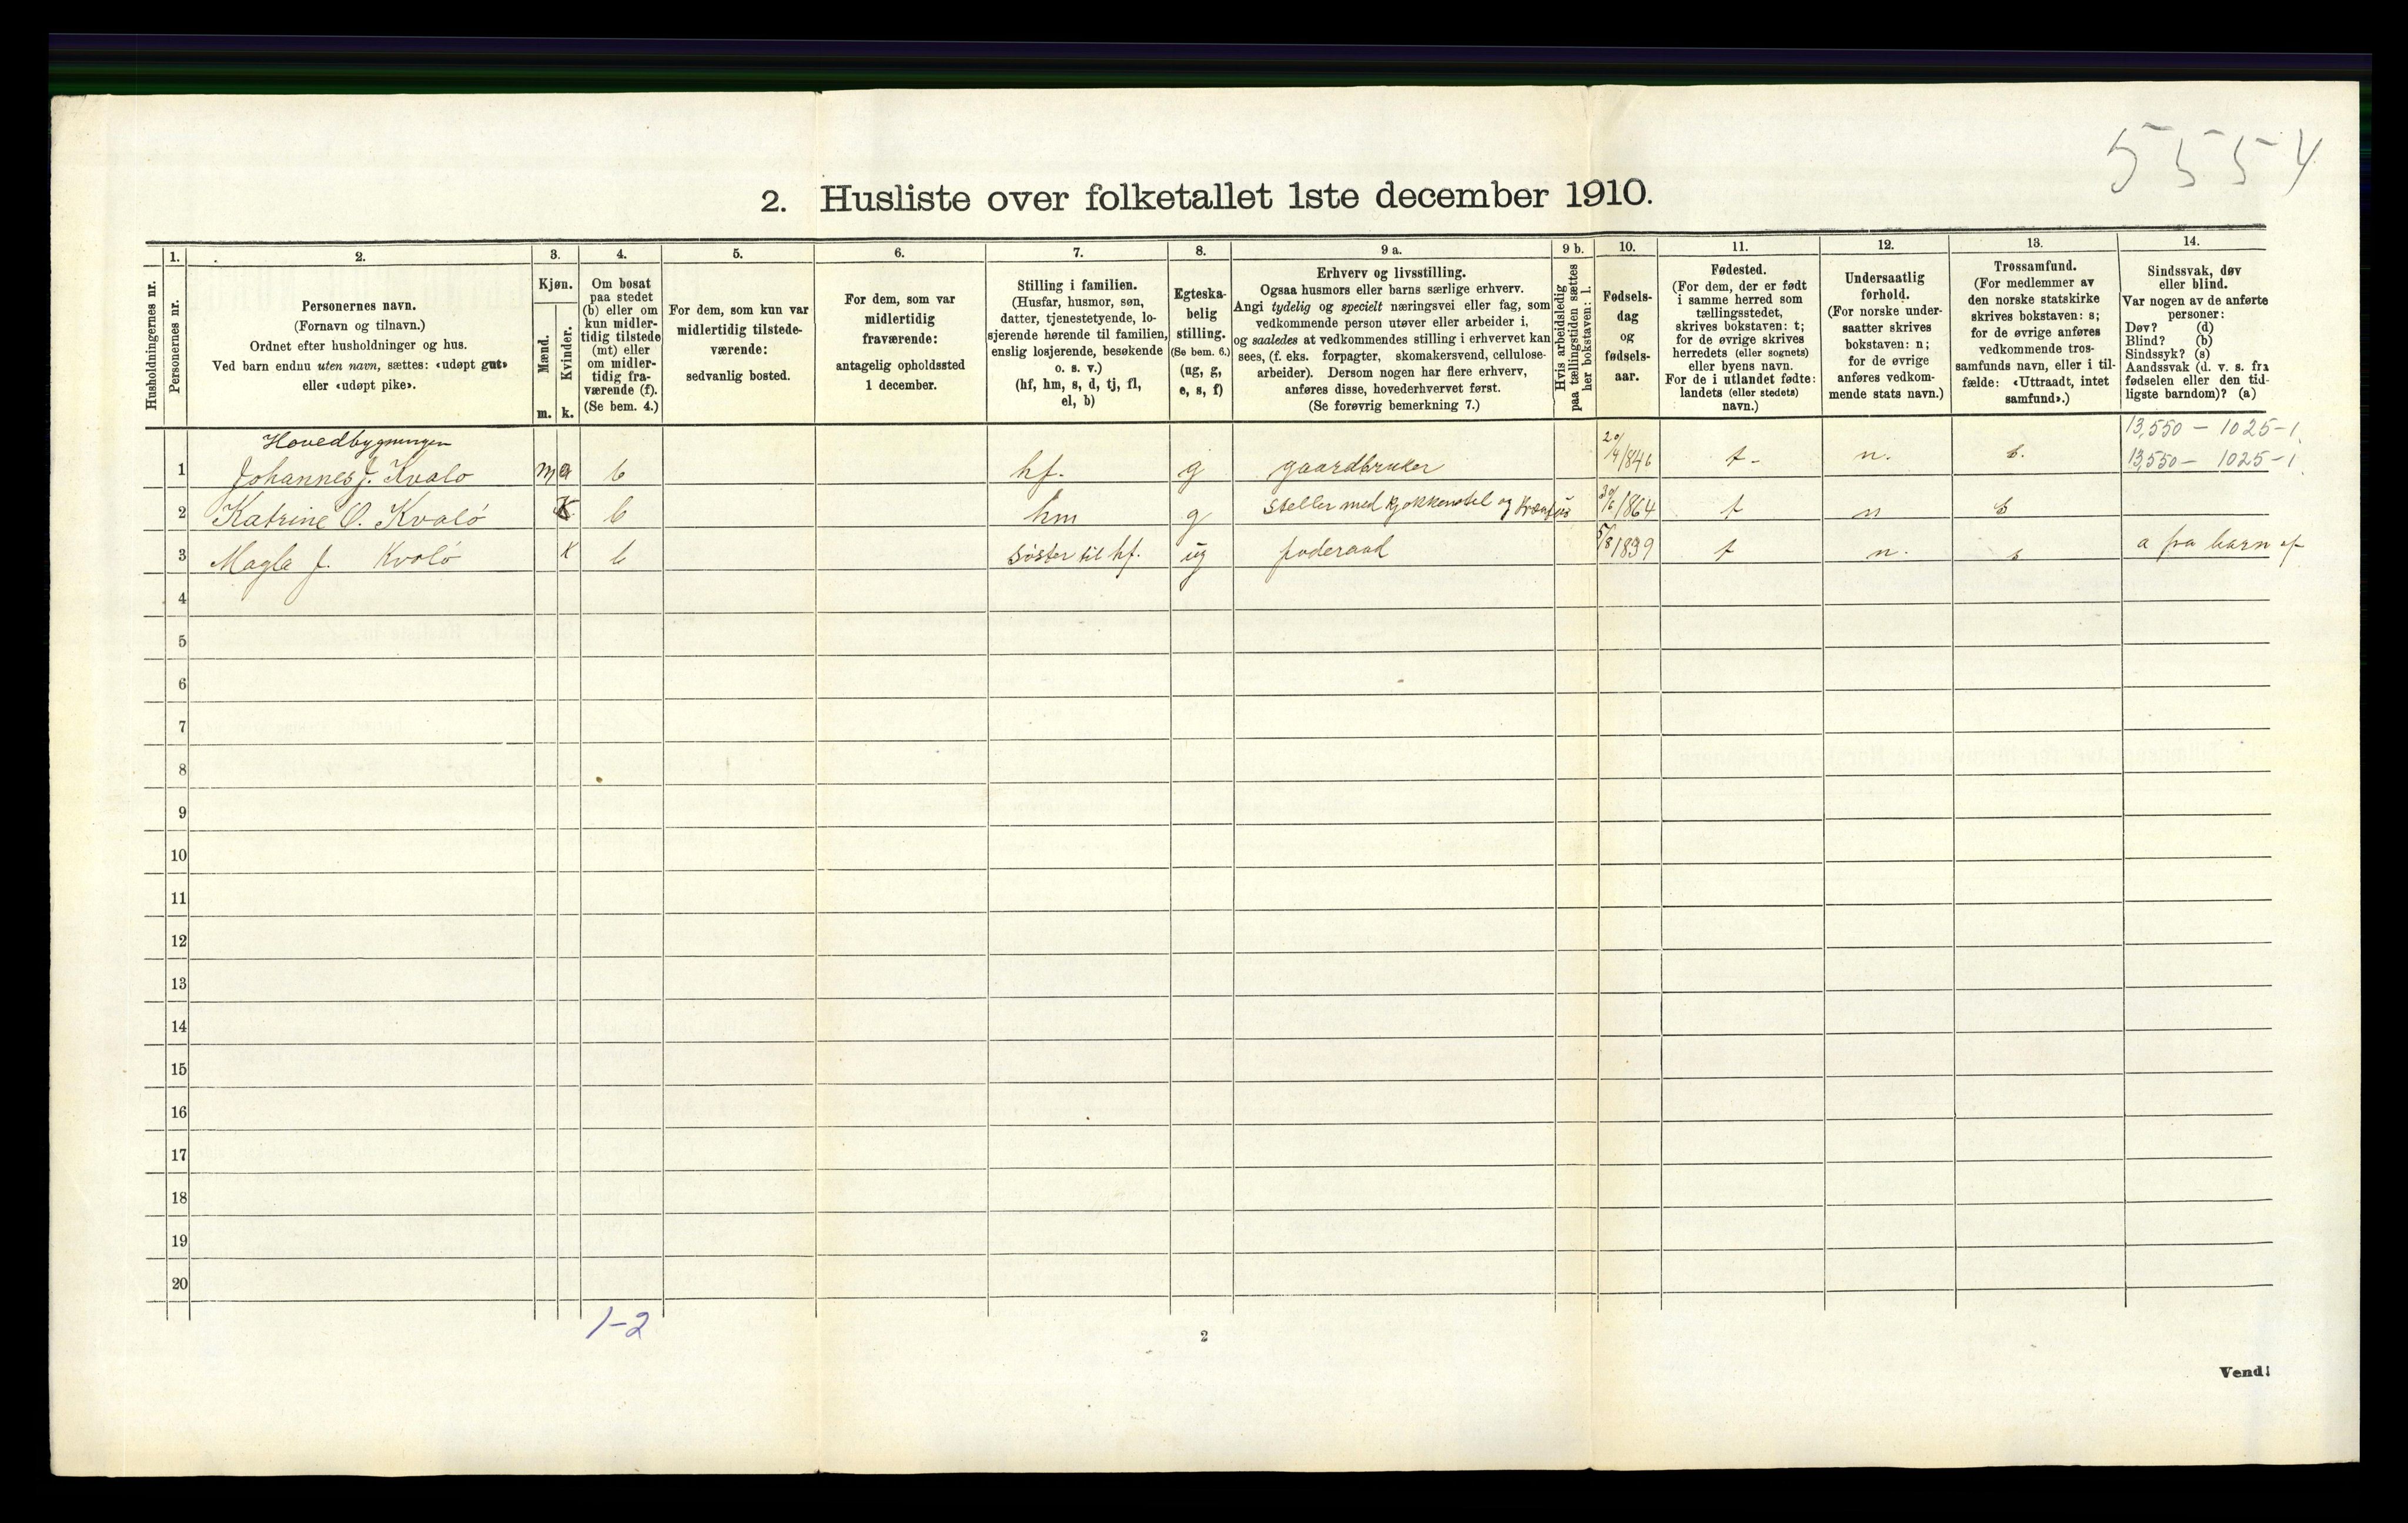 5554
2. Husliste over folketallet 1ste december 1910.
Husholdningernes nr.
1.
Personernes nr.
2.
Personernes navn.
(Fornavn og tilnavn.)
Ordnet efter husholdninger og hus.
Ved barn endnu uten navn, sættes: «udøpt gut»
eller «udøpt pike».
3.
Kjøn.
Mænd.
m.
Kvinder.
k.
4.
Om bosat
paa stedet
(b) eller om
kun midler-
tidig tilstede
(mt) eller
om midler-
tidig fra-
værende (f).
(Se bem. 4.)
5.
For dem, som kun var
midlertidig tilstede-
værende:
sedvanlig bosted.
6.
For dem, som var
midlertidig
fraværende:
antagelig opholdssted
1 december.
7.
Stilling i familien.
(Husfar, husmor, søn,
datter, tjenestetyende, lo-
sjerende hørende til familien,
enslig losjerende, besøkende
o. s. v.)
(hf, hm, s, d, tj, fl,
el, b)
8.
Egteska-
belig
stilling.
(Se bem. 6.)
(ug, g,
e, s, f)
9 a.
Erhverv og livsstilling.
Ogsaa husmors eller barns særlige erhverv.
Angi tydelig og specielt næringsvei eller fag, som
vedkommende person utøver eller arbeider i,
og saaledes at vedkommendes stilling i erhvervet kan
sees, (f. eks. forpagter, skomakersvend, cellulose-
arbeider). Dersom nogen har flere erhverv,
anføres disse, hovederhvervet først.
(Se forøvrig bemerkning 7.)
9 b.
Hvis arbeidsledig
paa tællingstiden sættes
her bokstaven: l.
10.
Fødsels-
dag
og
fødsels-
aar.
11.
Fødested.
(For dem, der er født
i samme herred som
tællingsstedet,
skrives bokstaven: t;
for de øvrige skrives
herredets (eller sognets)
eller byens navn.
For de i utlandet fødte:
landets (eller stedets)
navn.)
12.
Undersaatlig
forhold.
(For norske under-
saatter skrives
bokstaven: n;
for de øvrige
anføres vedkom-
mende stats navn.)
13.
Trossamfund.
(For medlemmer av
den norske statskirke
skrives bokstaven: s;
for de øvrige anføres
vedkommende tros-
samfunds navn, eller i til-
fælde: «Uttraadt, intet
samfund».)
14.
Sindssvak, døv
eller blind.
Var nogen av de anførte
personer:
Døv? (d)
Blind? (b)
Sindssyk? (s)
Aandssvak (d. v. s. fra
fødselen eller den tid-
ligste barndom)? (a)
Hovedbygningen 13,550 – 1025–1.
1 Johannes J. Kvalo m b hf. g gaardbruker 20/4 1846 t n. s. 13,550 – 1025–1.
2 Katrine O. Kvaló K b hm g Steller med kjøkkenstel og 1864 t n s
3 Magla J. Kvoló K b Søster til hf. ug foderaad 5/8 1839 t n. s a fra barn af
4
5
6
7
8
9
10
11
12
13
14
15
16
17
18
19
20
1–2
2
Vend!